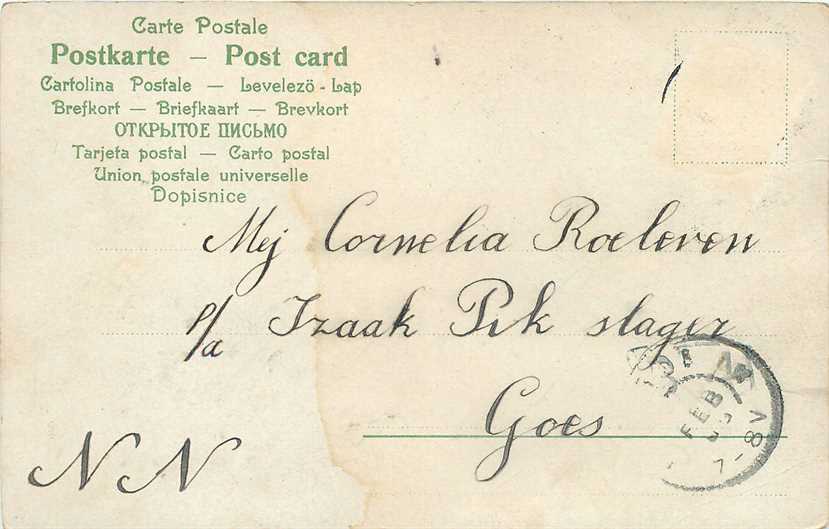 Carte Postale
Postkarte — Post card
Cartolina Postale — Levelezö-Lap
Brefkort — Briefkaart — Brevkort
ОТКРЫТОЕ ПИСЬМО
Tarjeta postal — Carto postal
Union postale universelle
Dopisnice
Mej Cornelia Roeleven
p/a Izaak Pik slager
Goes
N N
FEB
7-8V